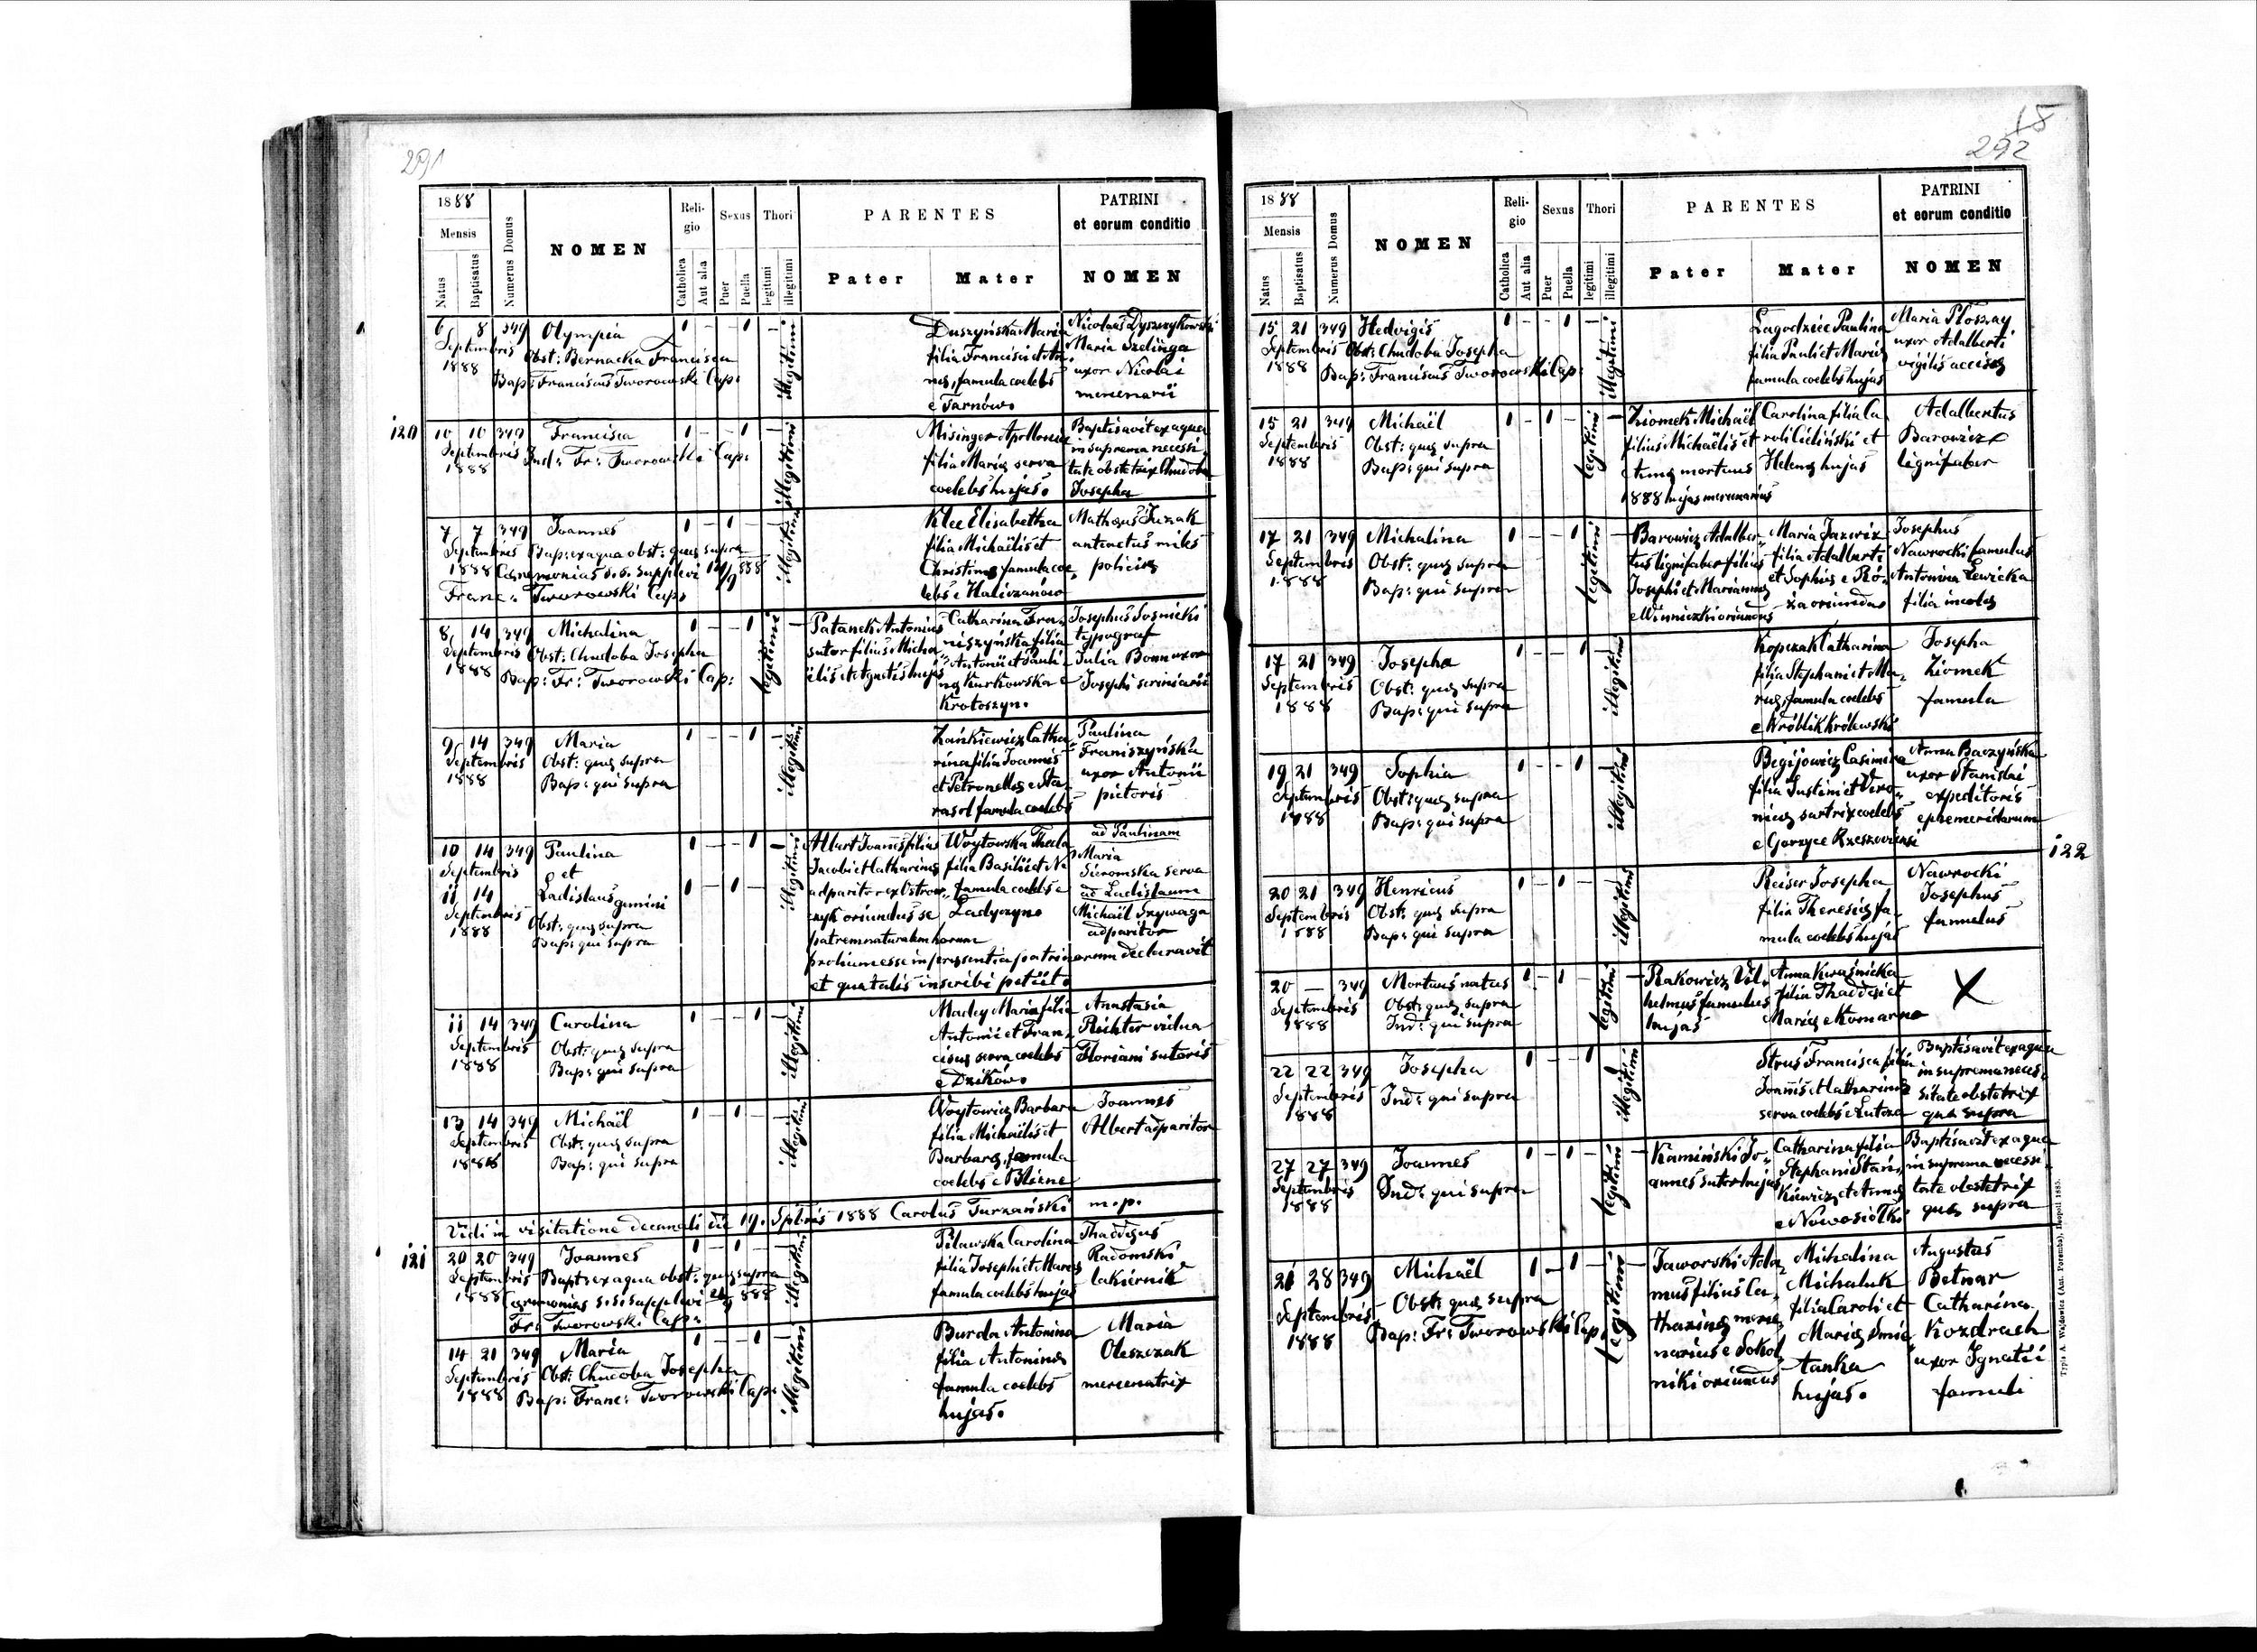 291
1888
Mensis
Natus
Baptisatus
Numerus Domus
NOMEN
Reli-
gio
Catholica
Aut alia
Sexus
Puer
Puella
Thori
legitimi
illegitimi
PARENTES
Pater
Mater
PATRINI
et eorum conditio
NOMEN
6 8 349 Olympia 1 - - 1 - illegitimi
Septembris Obst: Bernacka Francisca
1888 Bap: Franciscus Tworowski Cap:
Duszyńska Maria
filia Francisci et An-
nę, famula coelebs
e Tarnów.
Nicolaus Dyszczykowski
Maria Szelinga
uxor Nicolai
mercenarii
120
10 10 349 Francisca 1 - - 1 - illegitimi
Septembris Ind: Fr: Tworowski Cap:
1888
Misinger Apollonia
filia Marię serva
coelebs hujas.
Baptisavit ex aqua
in suprema necessi-
tate obstetrix Chudoba
Josepha
7 7 349 Joannes 1 - 1 - - illegitimi
Septembris Bap: ex aqua obst: quę supra
1888 Cęremonias s. s. supplevi 14/9 888
Franc: Tworowski Cap:
Klee Elisabetha
filia Michaëlis et
Christinę famula coe-
lebs e Haliczanów
Mathęus Juzak
miles
policię
8 14 349 Michalina 1 - - 1 legitimi -
Septembris Obst: Chudoba Josepha
1888 Bap: Fr: Tworowski Cap:
Patanek Antonius
sutor filius Micha-
ëlis et Agnetis hujas
Catharina Fra-
niszyńska filia
Antonii et Pauli-
nę Kurkowska e
Krotoszyn.
Josephus Sosnicki
typograf
Julia Bonn uxor
Josephi scriniarii
9 14 349 Maria 1 - - 1 - illegitimi
Septembris Obst: quę supra
1888 Bap: qui supra
Zankiewicz Catha-
rina filia Joannis
et Petronellę e Sta-
rasol famula coelebs
Paulina
Franiszyńska
uxor Antonii
pictoris
10 14 349 Paulina 1 - - 1 - illegitimi
Septembris et
11 14 Ladislaus gemini 1 - 1 -
Septembris Obst: quę supra
1888 Bap: qui supra
Albert Joannes filius
Jacobi et Catharinę
adparitor ex Ostrow-
czyk oriundus se
patrem naturalem harum
prolium esse in pręsentia patrinorum declaravit
et qua talis inscribi petiit.
Woytowska Thecla
filia Basilii et
famula coelebs e
Ladyczyn.
ad Paulinam
Maria
Sieromska serva
ad Ladislaum
Michaël Szywaga
adparitor
11 14 349 Carolina 1 - - 1 - illegitimi
Septembris Obst: quę supra
1888 Bap: qui supra
Madey Maria filia
Antonii et Fran-
ciscę serva coelebs
e Dzików.
Anastasia
Richter vidua
Floriani sutoris
13 14 349 Michaël 1 - 1 - - illegitimi
Septembris Obst: quę supra
1888 Bap: qui supra
Woytowicz Barbara
filia Michaëlis et
Barbarę, famula
coelebs e Blizne
Joannes
Albert adparitor
Vidi in visitatione decanali die 19. Septbris 1888 Carolus Turzański m. p.
121
20 20 349 Joannes 1 - 1 - - illegitimi
Septembris Bapt: ex aqua obst: quę supra
1888 Cęremonias s. s. supplevi 888
Fr: Tworowski Cap:
Pilawska Carolina
filia Josephi et Marię
famula coelebs hujas
Thaddęus
Radomski
lakiernik
14 21 349 Maria 1 - - 1 - illegitimi
Septembris Obst: Chudoba Josepha
1888 Bap: Franc: Tworowski Cap:
Burda Antonina
filia Antoninę
famula coelebs
hujas.
Maria
Oleszczak
mercenatrix
18
292
1888
Mensis
Natus
Baptisatus
Numerus Domus
NOMEN
Reli-
gio
Catholica
Aut alia
Sexus
Puer
Puella
Thori
legitimi
illegitimi
PARENTES
Pater
Mater
PATRINI
et eorum conditio
NOMEN
15 21 349 Hedvigis 1 - - 1 - illegitimi
Septembris Obst: Chudoba Josepha
1888 Bap: Franciscus Tworowski Cap:
Łagodziec Paulina
filia Pauli et Marię
famula coelebs hujas
Maria Płoszay
uxor Adalberti
vigilis accisę
15 21 349 Michaël 1 - 1 - legitimi -
Septembris Obst: quę supra
1888 Bap: qui supra
Ziomek Michaël
filius Michaëlis et
mortuus
1888 hujas mercenarius
Carolina filia Ca-
roli Cieliński et
Helenę hujas
Adalbertus
Barowicz
lignifaber
17 21 349 Michalina 1 - - 1 legitimi -
Septembris Obst: quę supra
1888 Bap: qui supra
Barowicz Adalber-
tus lignifaber filius
Josephi et Mariannę
e Winniczki oriundus
Maria Jazowicz
filia Adalberti
et Sophię e Ró-
ża oriundus
Josephus
Nawrocki famulus
Antonina Lewicka
filia incolę
17 21 349 Josepha 1 - - 1 - illegitimi
Septembris Obst: quę supra
1888 Bap: qui supra
Kopczak Catharina
filia Stephani et Ma-
rię, famula coelebs
e Wróblik Królewski
Josepha
Ziomek
famula
19 21 349 Sophia 1 - - 1 - illegitimi
Septembris Obst: quę supra
1888 Bap: qui supra
Begijowicz Casimira
filia Justini et Vero-
nicę sartrix coelebs
e Gorzyce Rzeszoviensi
Anna Baczyńska
uxor Stanislai
expeditoris
ephemeridarum
122
20 21 349 Henricus 1 - 1 - - illegitimi
Septembris Obst: quę supra
1888 Bap: qui supra
Reiser Josepha
filia Theresię fa-
mula coelebs hujas
Nawrocki
Josephus
famulus
20 - 349 Mortuus natus 1 - 1 - legitimi -
Septembris Obst: quę supra
1888 Ind: qui supra
Rakowicz Vil-
helmus famulus
hujas
Anna Kwaśnicka
filia Thaddęi et
Marię e Komarno
X
22 22 349 Josepha 1 - - 1 illegitimi
Septembris Ind: qui supra
1888
Struś Francisca filia
Joannis et Catharinę
serva coelebs e Lutcza
Baptisavit ex aqua
in suprema neces-
sitate obstetrix
quę supra
27 27 349 Joannes 1 - 1 - legitimi -
Septembris Ind: qui supra
1888
Kamiński Jo-
annes sutor hujas
Catharina filia
Stephani Stan-
kiewicz et Annę
e Nowosiółki
Baptisavit ex aqua
in suprema necessi-
tate obstetrix
quę supra
21 28 349 Michaël 1 - 1 - legitimi -
Septembris Obst: quę supra
1888 Bap: Fr: Tworowski Cap:
Jaworski Ada-
mus filius Ca-
tharinę merce-
narius e Sokol-
niki oriundus
Michalina
Michaluk
filia Caroli et
Marię Smie-
tanka
hujas.
Augustus
Betnar
Catharina
Kozdrach
uxor Ignatii
famuli
Typis A. Wajdowicz (Ant. Poremba), Leopoli 1885.